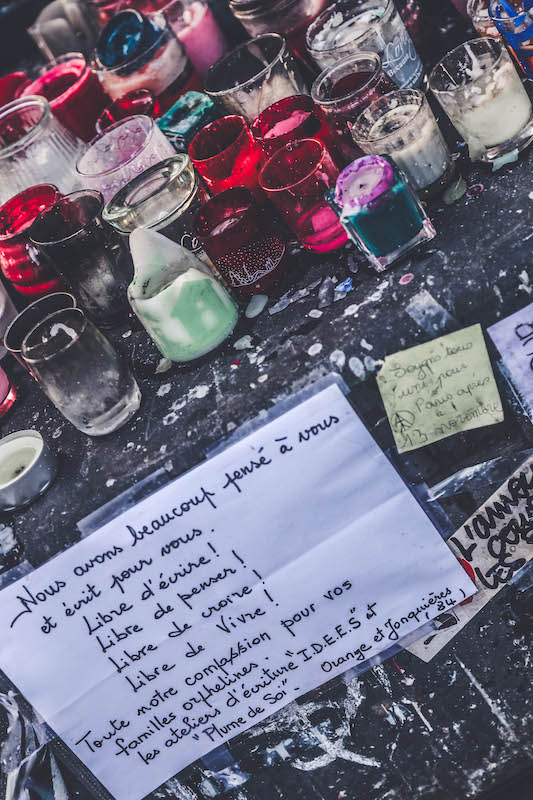 Nous avons beaucoup pensé à vous
et écrit pour vous.
Libre d'écrire!
Libre de penser!
Libre de croire!
Libre de Vivre!
Toute notre compassion pour vos
familles orphelines.
les ateliers d'écriture "I.D.E.E.S" et
"Plume de Soi" - Orange et Jonquières
(84)
Soyons tous
unis pour
Paris après
le
13 novembre
L'amour
LES